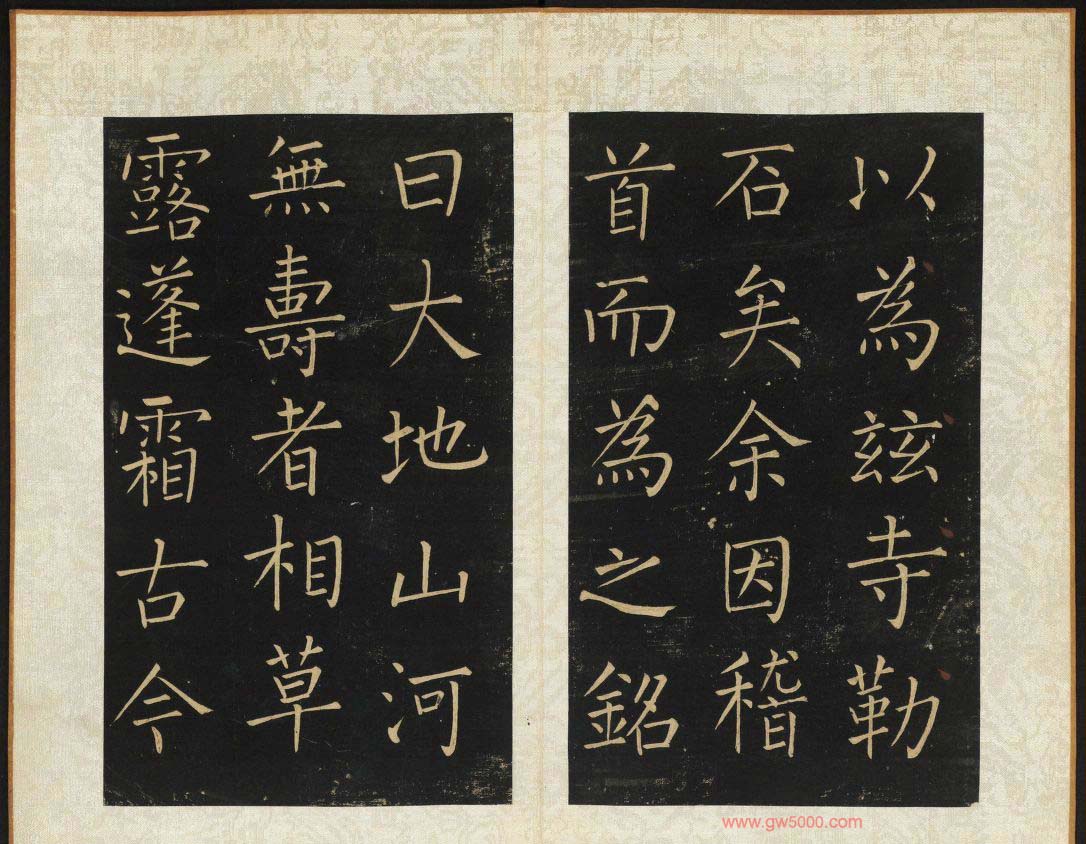 以為玆寺勒
石矣余因稽
首而為之銘
曰大地山河
無壽者相草
露蓬霜古今
www.gw5000.com